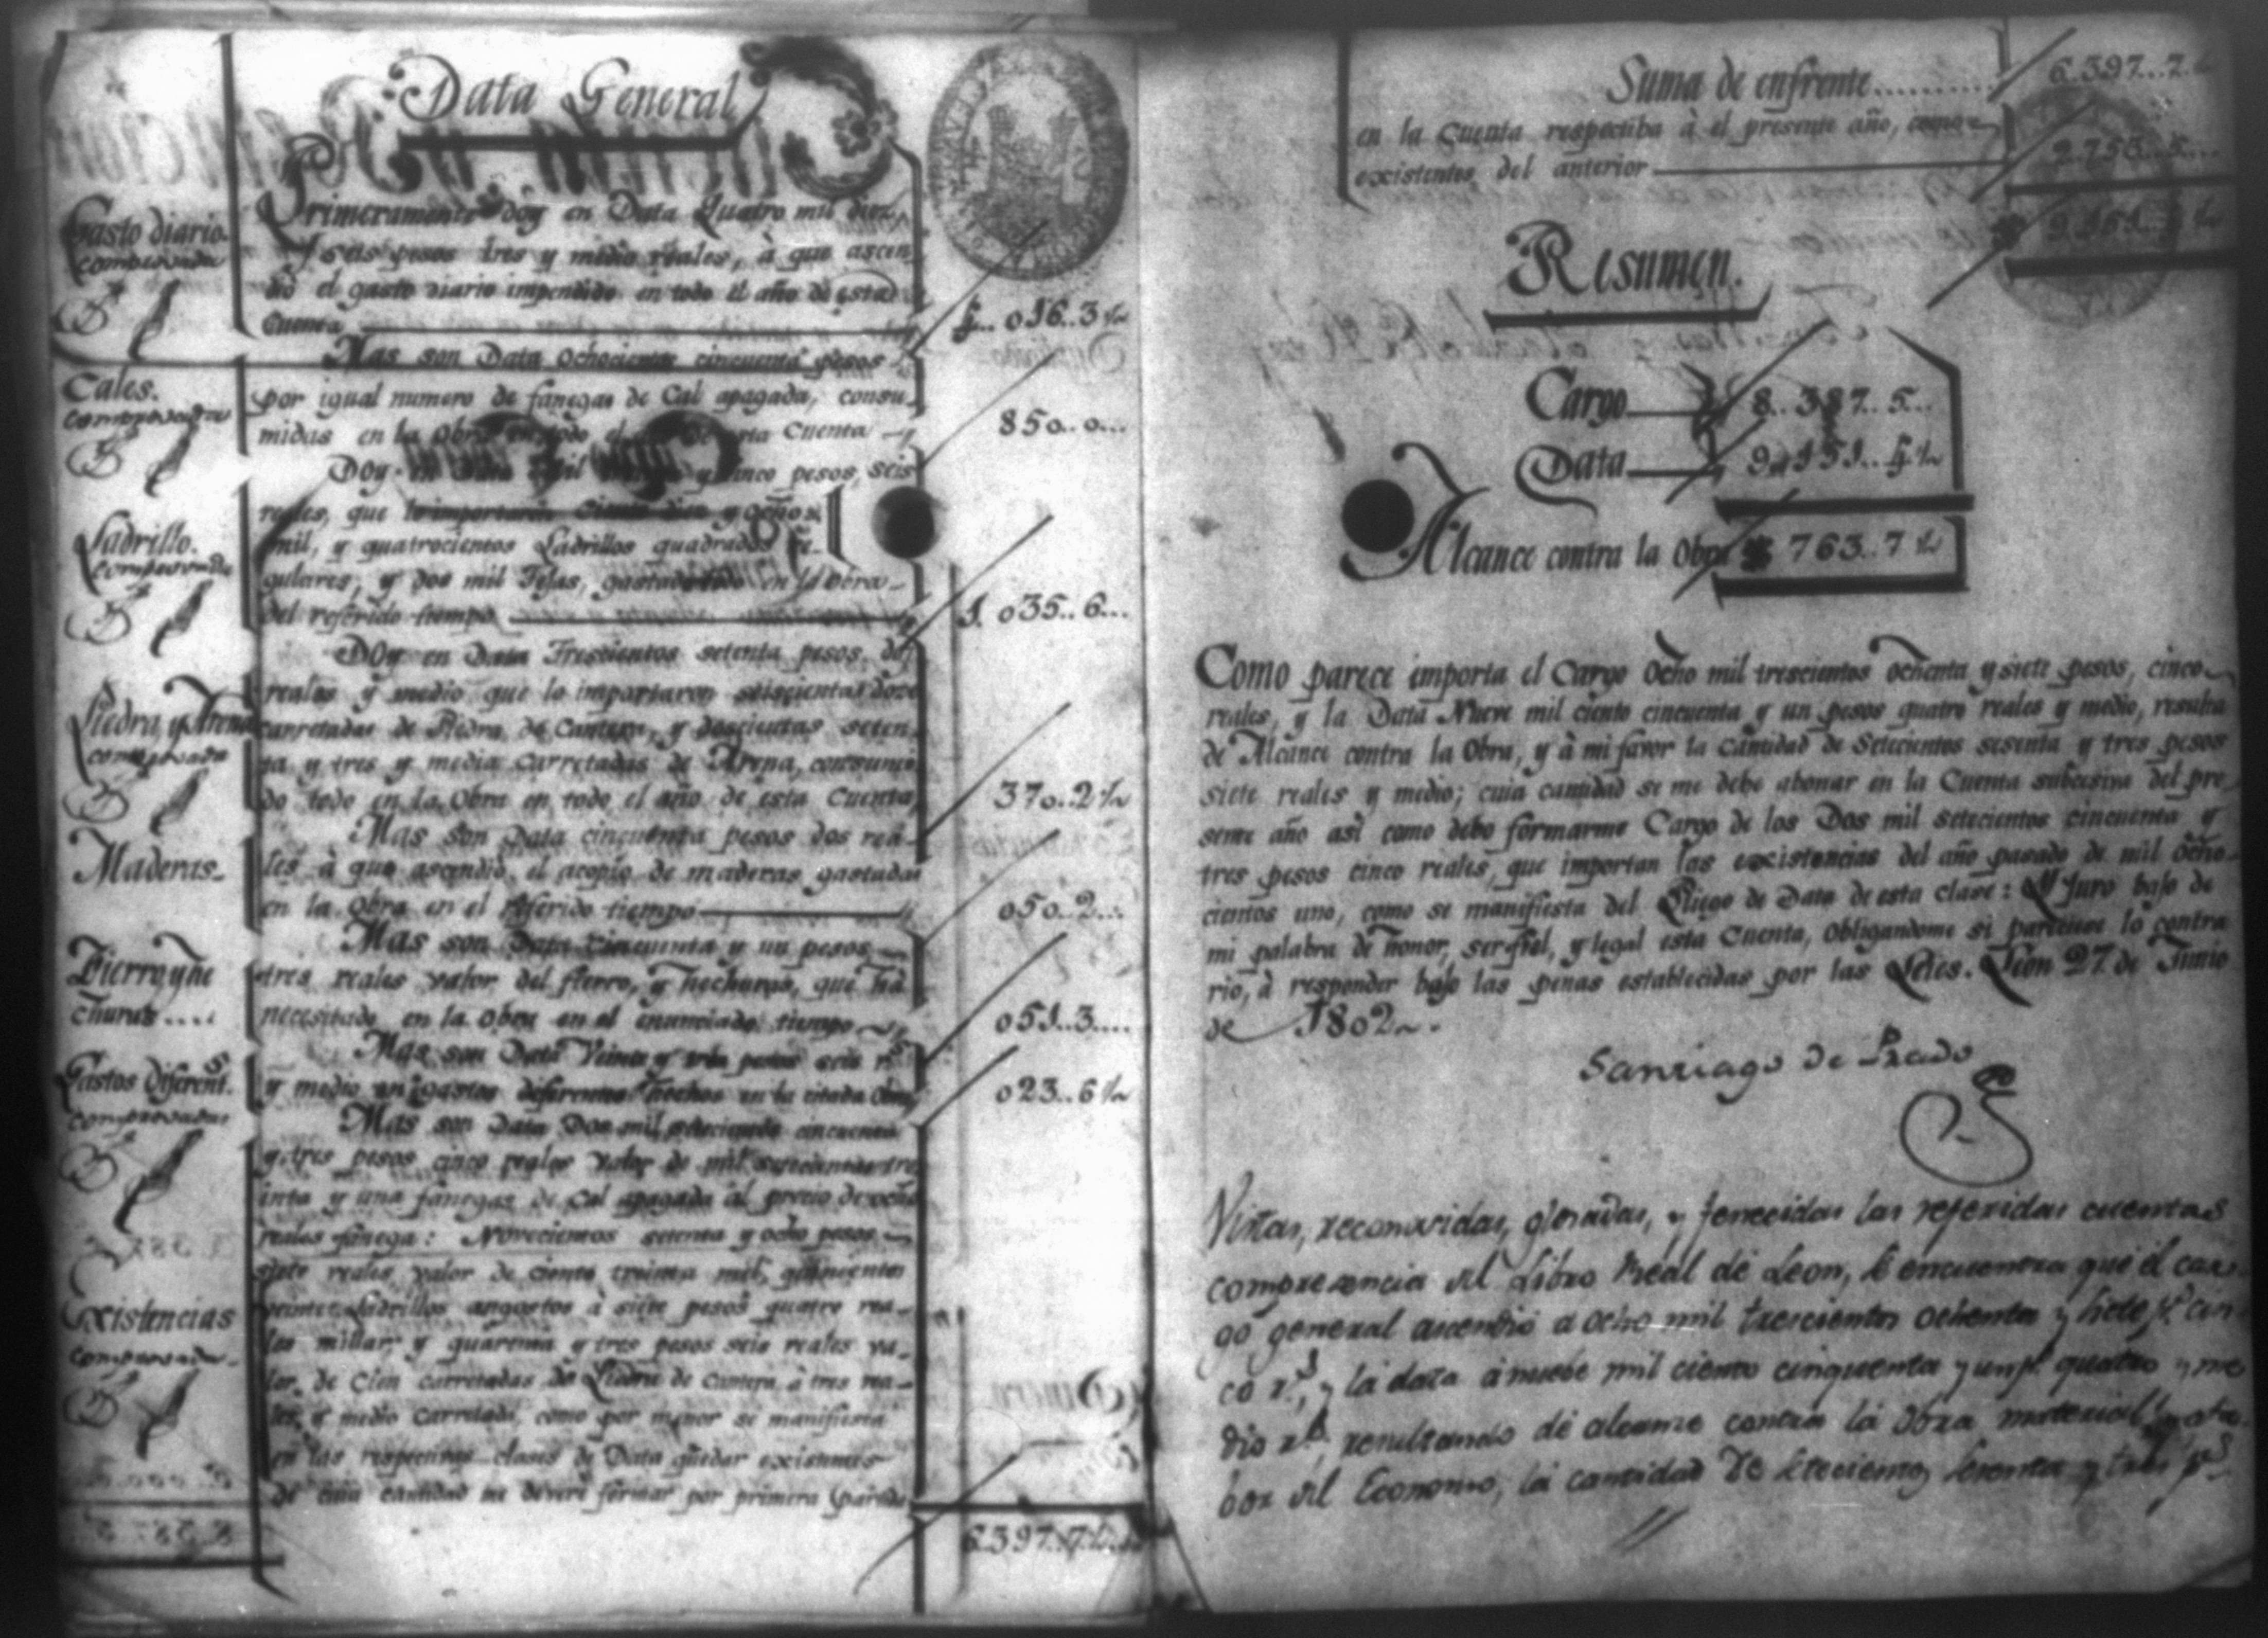 Data General
Gasto diario.
comprovado
Primeramente doy en Data Quatro mil diez,
y seis pesos tres y medio reales, à que ascen
dió el gasto diario impendido en todo el año de esta
Cuenta 4..016..3 ½
Cales.
comprovadas
Mas son Data ochocientos cincuenta pesos
por igual numero de fanegas de Cal apagada, consu-
midas en la Obra en todo el año de esta Cuenta 850..0...
Ladrillo.
comprovado
Doy en Data Mil treinta y cinco pesos, seis
reales, que importaron Ciento diez y ocho
mil, y quatrocientos Ladrillos quadrados, Re-
gulares, y dos mil Tejas, gastado todo en la Obra
del referido tiempo 1.035..6...
Piedra, y Arena
comprovado
Doy en Data Trescientos setenta pesos, dos
reales y medio que lo importaron seiscientas doze
carretadas de Piedra de Cantera, y doscientas seten-
ta y tres y media Carretadas de Arena, consumi-
do todo en la Obra en todo el año de esta Cuenta 370..2 ½
Maderas.
Mas son Data cincuenta pesos dos rea-
les à que ascendió el acopio de maderas gastadas
en la Obra en el referido tiempo 050..2...
Fierro, y he
churas....
Mas son Data Cincuenta y un pesos
tres reales valor del fierro, y hechuras, que ha
necesitado en la Obra en el enunciado tiempo 051..3....
Gastos diferents.
comprovados
Mas son Data Veinte y tres pesos seis rs
y medio en gastos diferentes hechos en la citada Obra 023..6 ½
Existencias
comprovadas
Mas son Data Dos mil setecientos cincuenta
y tres pesos cinco reales valor de mil setecientas tre
inta y una fanegas de Cal apagada al precio de ocho
reales fanega: Novecientos setenta y ocho pesos
siete reales valor de ciento treinta mil, quinientos
veinte Ladrillos angostos à siete pesos quatro rea-
les millar; y quarenta y tres pesos seis reales va-
lor de Cien carretadas de Piedra de Cantera à tres rea-
les, y medio Carretada, como por menor se manifiesta
en las respectivas clases de Data quedar existentes
de cuia cantidad me deveré formar por primera partida
6.397..7 ½
Suma de enfrente.......... 6.397..7 ½
en la Cuenta respectiba à el presente año, como
existentes del anterior 2.753..5...
9.151..4 ½
Resumen.
Cargo 8..387..5...
Data 9..151..4 ½
Alcance contra la Obra 763..7 ½
Como parece importa el Cargo Ocho mil trescientos ochenta y siete pesos, cinco
reales, y la Data Nueve mil ciento cincuenta y un pesos quatro reales y medio, resulta
de Alcance contra la Obra, y à mi favor la Cantidad de Setecientos sesenta y tres pesos
siete reales y medio; cuia cantidad se me debe abonar en la Cuenta subcesiva del pre-
sente año asi como debo formarme Cargo de los Dos mil setecientos cincuenta y
tres pesos cinco reales, que importan las existencias del año pasado de mil ocho-
cientos uno, como se manifiesta del Pliego de Data de esta clase: Y Juro bajo de
mi palabra de honor, ser fiel, y legal esta Cuenta, obligandome si pareciese lo contra
rio, à responder bajo las penas establecidas por las Leies. Leon 27 de Junio
de 1802.
Santiago de Prado
Vistas, reconocidas, glosadas, y fenecidas las referidas cuentas
comprezencia del Libro Real de Leon, se encuentra que el car-
go general asendió a ocho mil trescientos ochenta y siete ps. cin-
co rs., y la data à nuebe mil ciento cinquenta y un ps. quatro y me
dio rs., resultando de alcance contra la Obra material, y a fa-
bor del Economo, la cantidad de setecientos sesenta y tres ps.